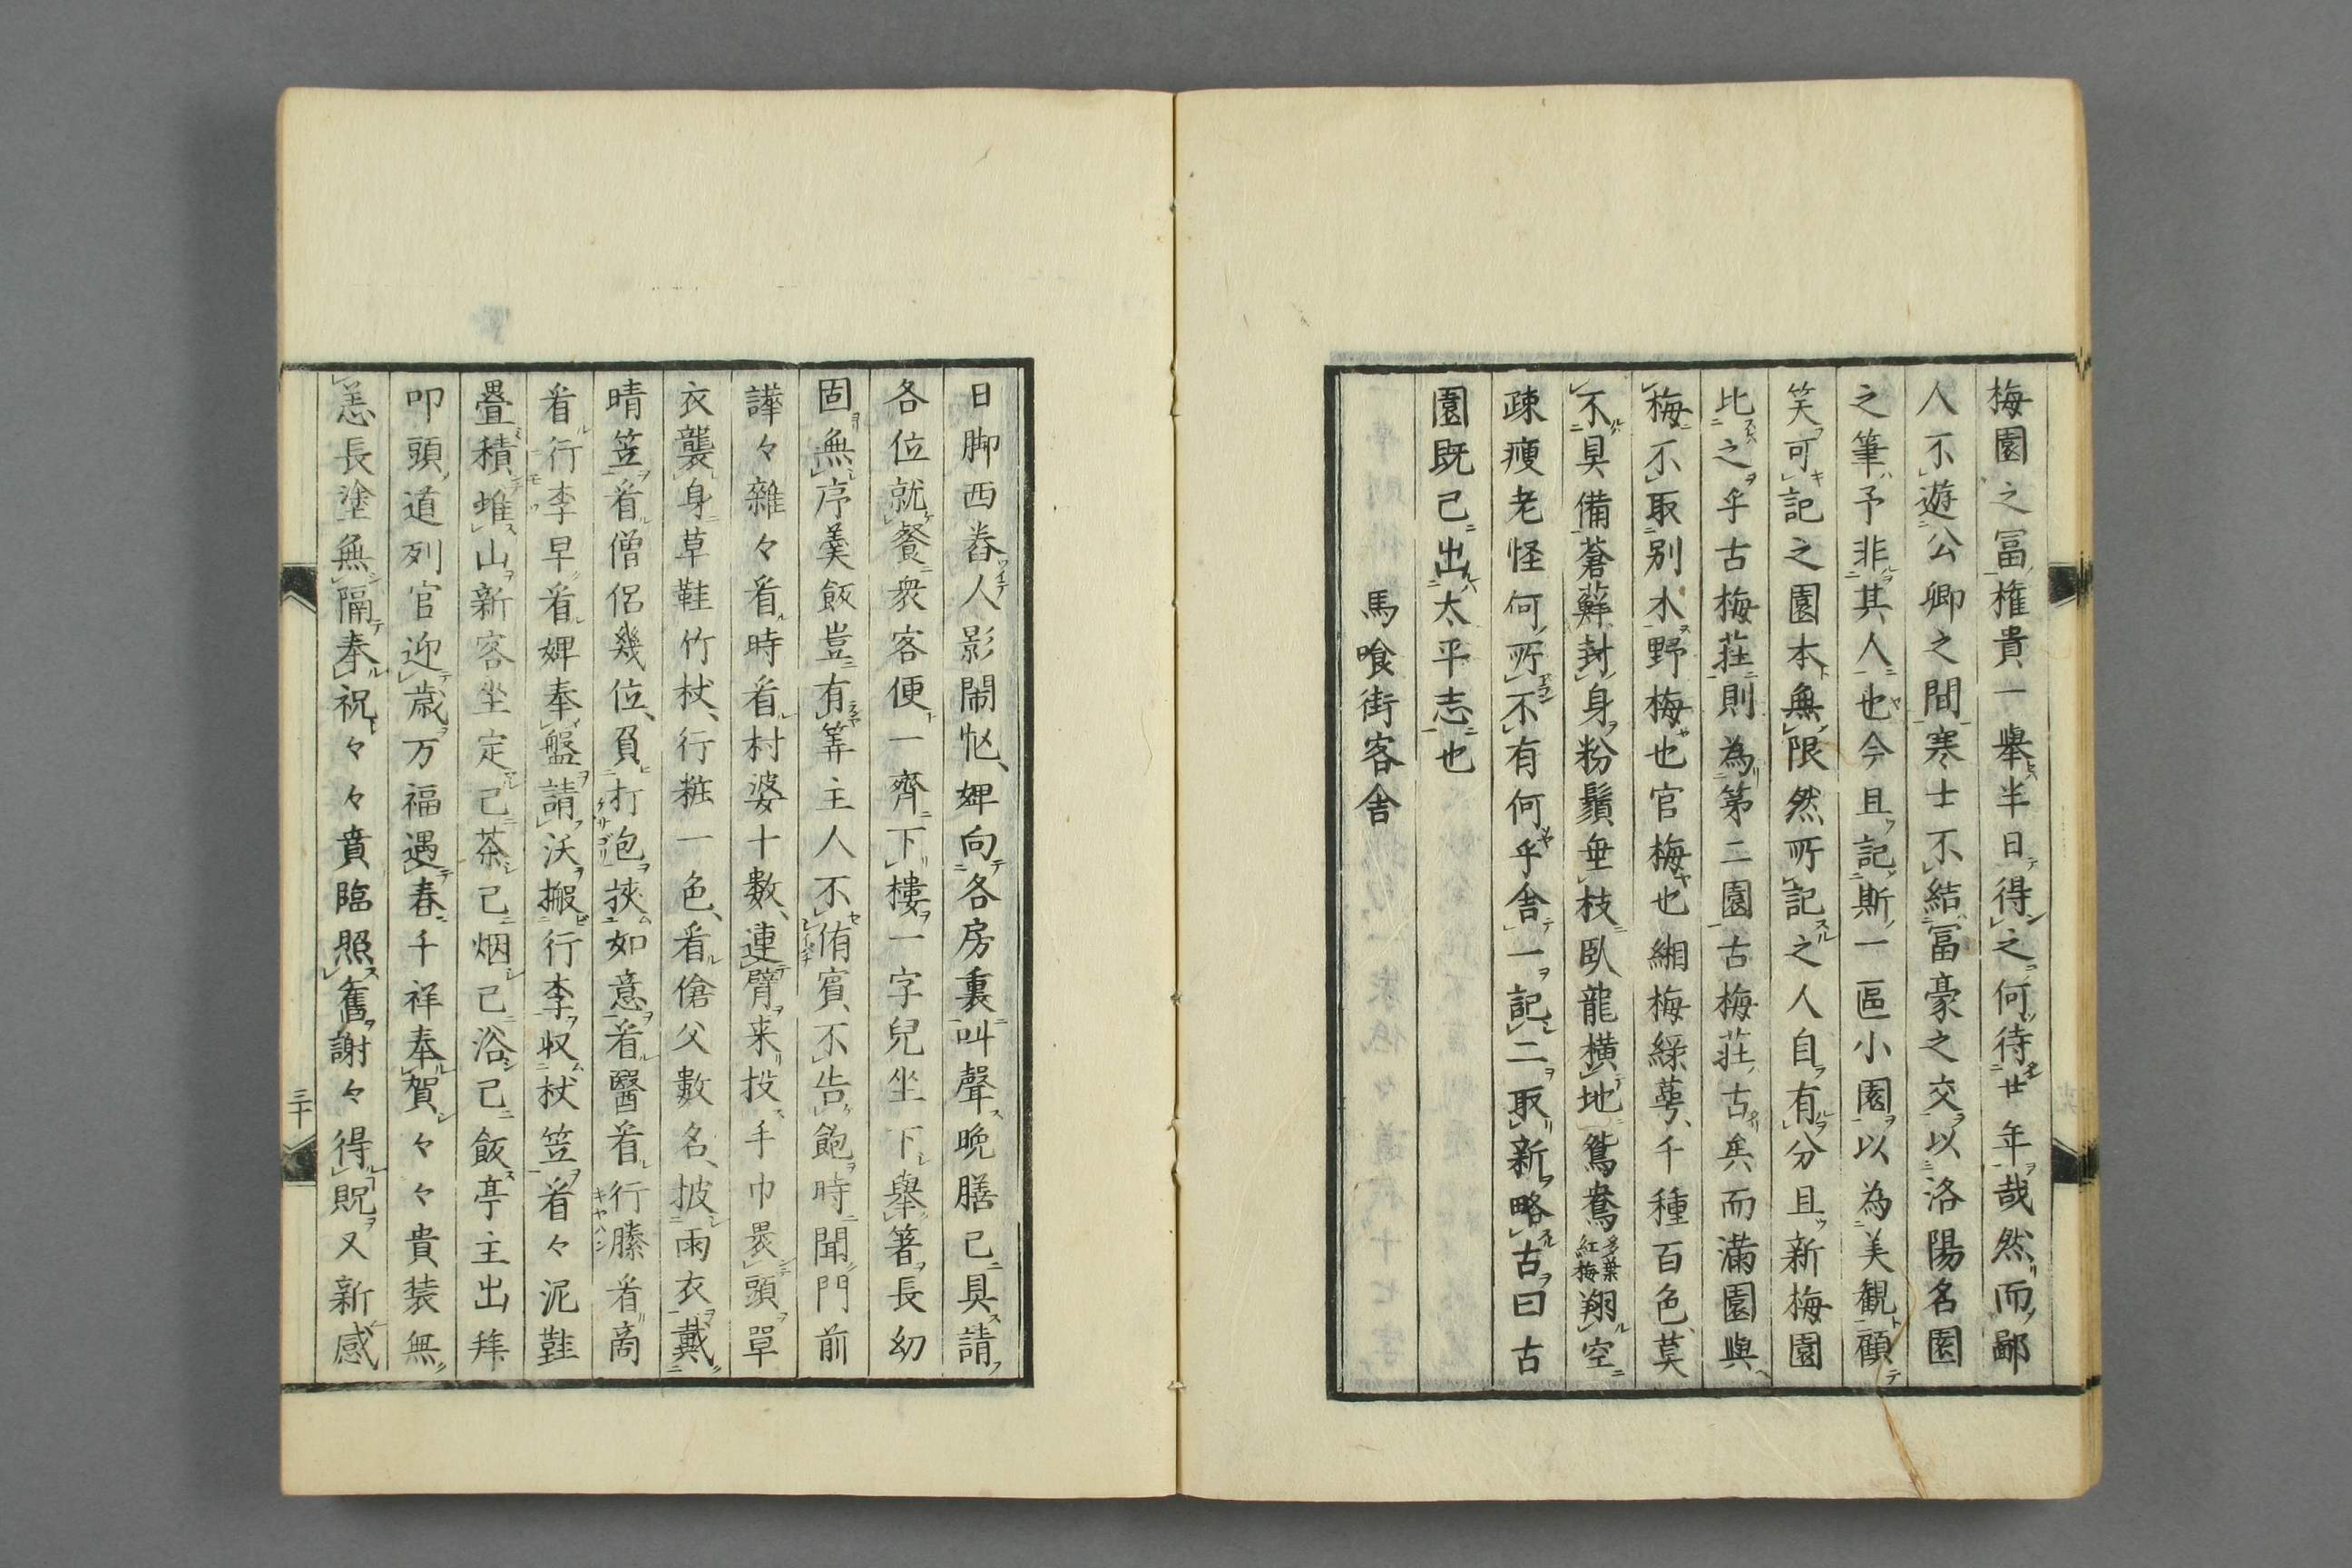 梅園之冨権貴一擧半日得之何待廿年哉然而鄙
人不遊公卿之間寒士不結冨豪之交以洛陽名園
之筆予非其人也今且記斯一區小園以為美観顧
笑可記之園本無限然所記之人自有分且新梅園
比之乎古梅荘則為第二園古梅荘古矣而滿園與
梅不取別木野梅也官梅也緗梅綵萼千種百色莫
不具備蒼蘚封身粉鬚垂枝臥龍横地鴛鴦多葉紅梅翔空
疎痩老怪何所不有何乎舎一記二取新略古曰古
園既已出太平志也
馬喰街客舎
日脚西舂人影閙忙婢向各房裏叫聲晩膳已具請
各位就餐衆客便一齊下樓一字兒坐下擧箸長幼
固無序羹飯豈有筭主人不侑賓不告飽時聞門前
譁々雜々看時看村婆十數連臂来投手巾裹頭單
衣襲身草鞋竹杖行粧一色看傖父數名披雨衣戴
晴笠看僧侶幾位負打包挾如意看醫看行縢看商
看行李早看婢奉盤請沃搬行李収杖笠看々泥鞋
疊積堆山新客坐定已茶已烟已浴已飯亭主出拜
叩頭道列官迎歳万福遇春千祥奉賀々々貴装無
恙長塗無隔奉祝々々賁臨照舊謝々得貺又新感
三十